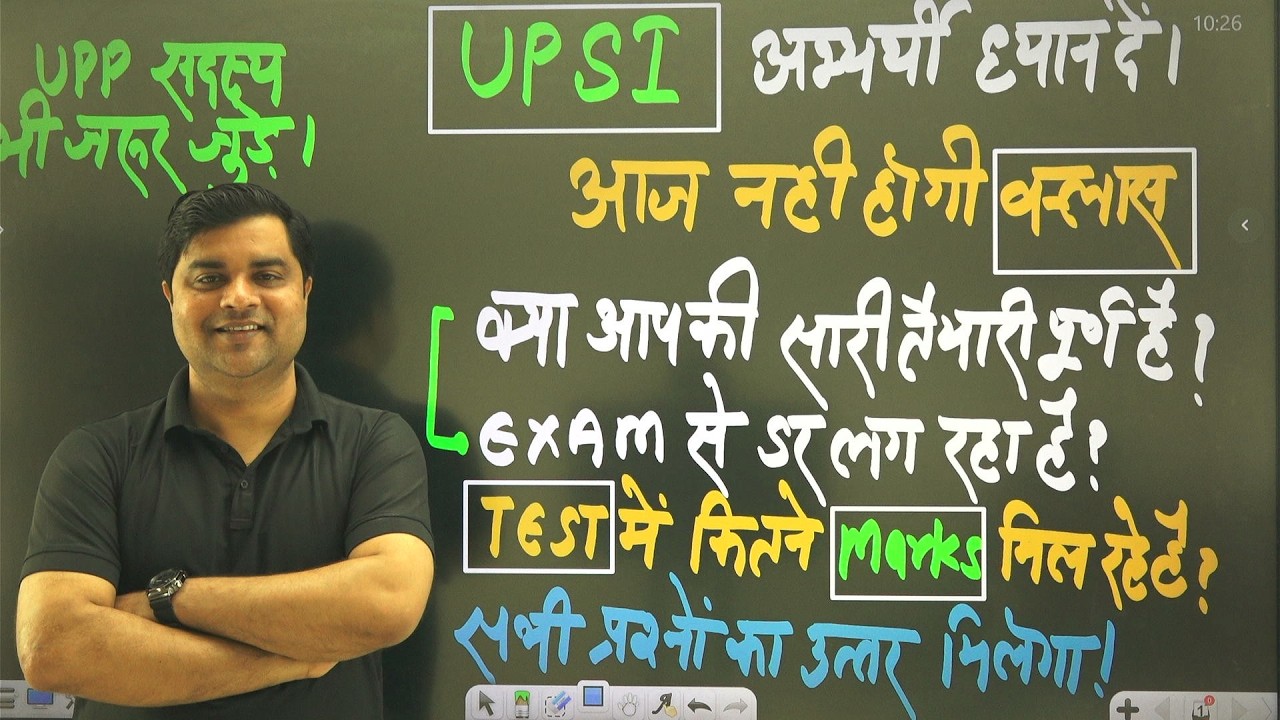 UPP सदस्य
भी जरूर जुड़े।
UPSI अभ्यर्थी ध्यान दें।
10:26
आज नही होगी क्लास
क्या आपकी सारी तैयारी पूर्ण है?
EXAM से डर लग रहा है?
TEST में कितने Marks मिल रहे है?
सभी प्रश्नों का उत्तर मिलेगा!
1